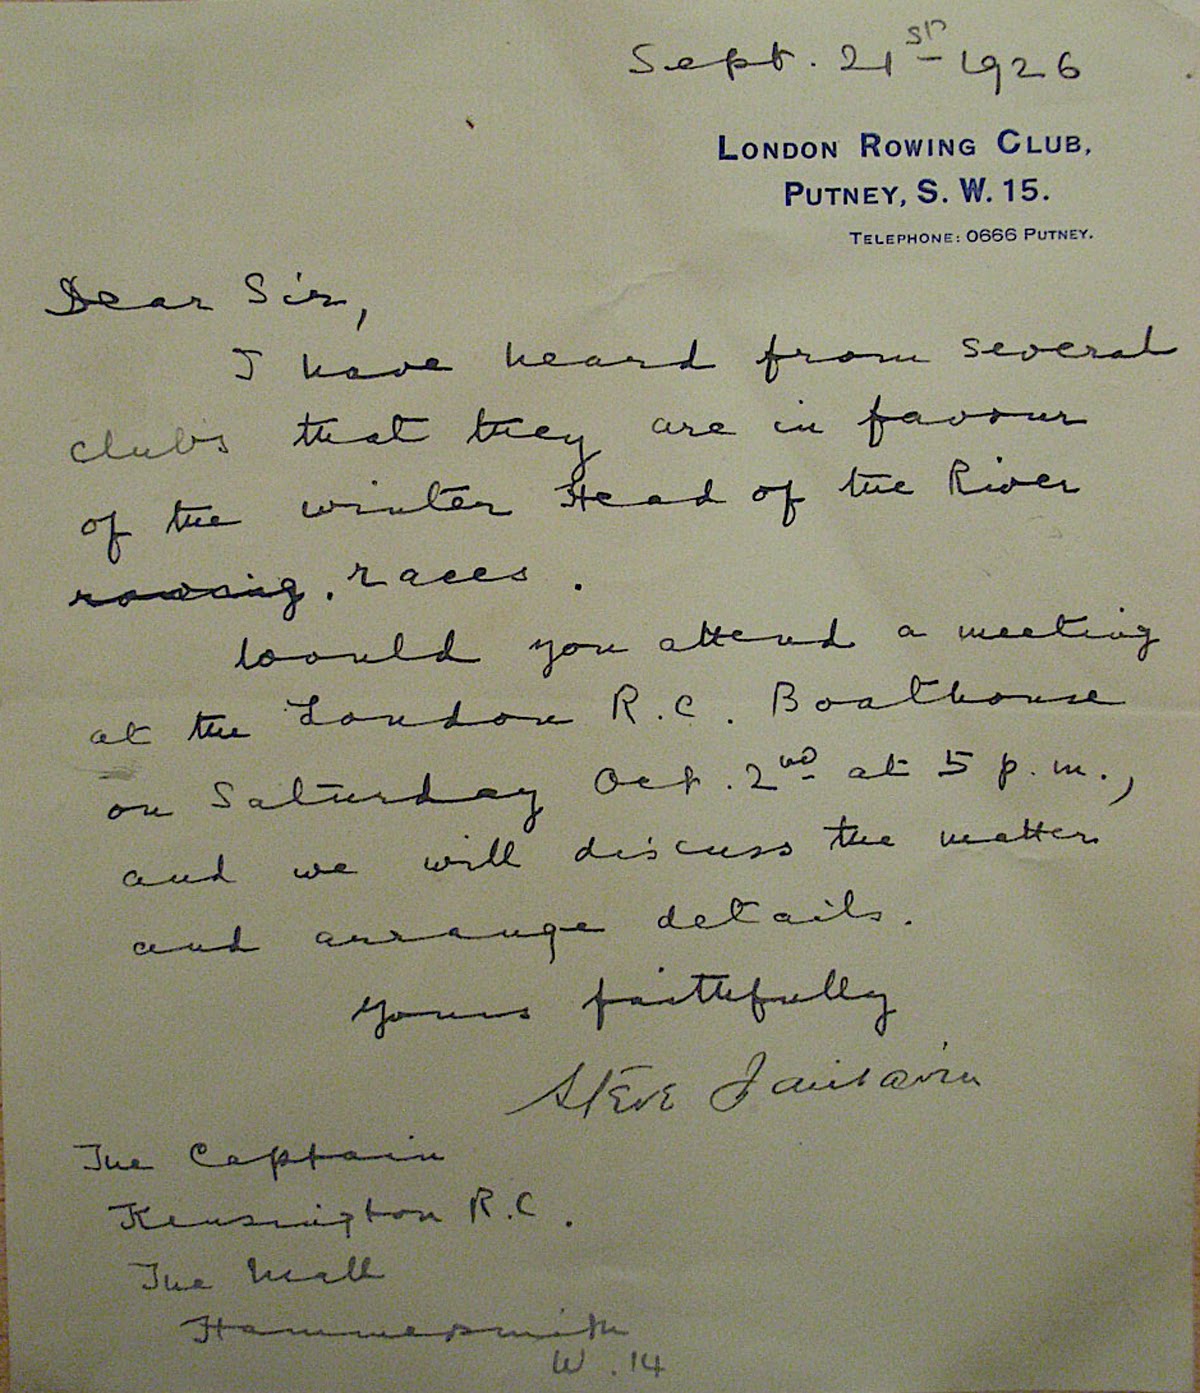 Sept. 21st 1926
LONDON ROWING CLUB,
PUTNEY, S. W. 15.
TELEPHONE: 0666 PUTNEY.
Dear Sir,
I have heard from several
clubs that they are in favour
of the winter Head of the River
rowing. races.
Would you attend a meeting
at the London R.C. Boathouse
on Saturday Oct. 2nd at 5 p.m.,
and we will discuss the matter
and arrange details.
Yours faithfully
Steve Fairbairn
The Captain
Kensington R.C.
The Mall
Hammersmith
W.14